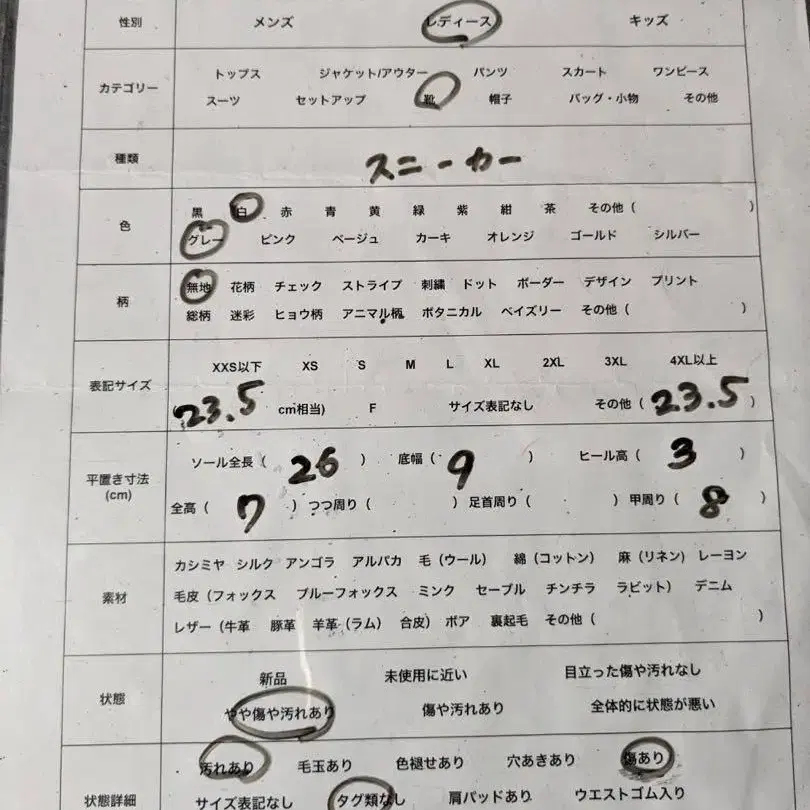 性別 メンズ レディース キッズ
カテゴリー
トップス ジャケット/アウター パンツ スカート ワンピース
スーツ セットアップ 靴 帽子 バッグ・小物 その他
種類 スニーカー
色
黒 白 赤 青 黄 緑 紫 紺 茶 その他 ( )
グレー ピンク ベージュ カーキ オレンジ ゴールド シルバー
柄
無地 花柄 チェック ストライプ 刺繍 ドット ボーダー デザイン プリント
総柄 迷彩 ヒョウ柄 アニマル柄 ボタニカル ペイズリー その他 ( )
表記サイズ
XXS以下 XS S M L XL 2XL 3XL 4XL以上
23.5 cm相当) F サイズ表記なし その他 ( 23.5 )
平置き寸法
(cm)
ソール全長 ( 26 ) 底幅 ( 9 ) ヒール高 ( 3 )
全高 ( 7 ) つつ周り ( ) 足首周り ( ) 甲周り ( 8 )
素材
カシミヤ シルク アンゴラ アルパカ 毛 (ウール) 綿 (コットン) 麻 (リネン) レーヨン
毛皮 (フォックス ブルーフォックス ミンク セーブル チンチラ ラビット) デニム
レザー (牛革 豚革 羊革 (ラム) 合皮) ボア 裏起毛 その他 ( )
状態
新品 未使用に近い 目立った傷や汚れなし
やや傷や汚れあり 傷や汚れあり 全体的に状態が悪い
状態詳細
汚れあり 毛玉あり 色褪せあり 穴あきあり 傷あり
サイズ表記なし タグ類なし 肩パッドあり ウエストゴム入り